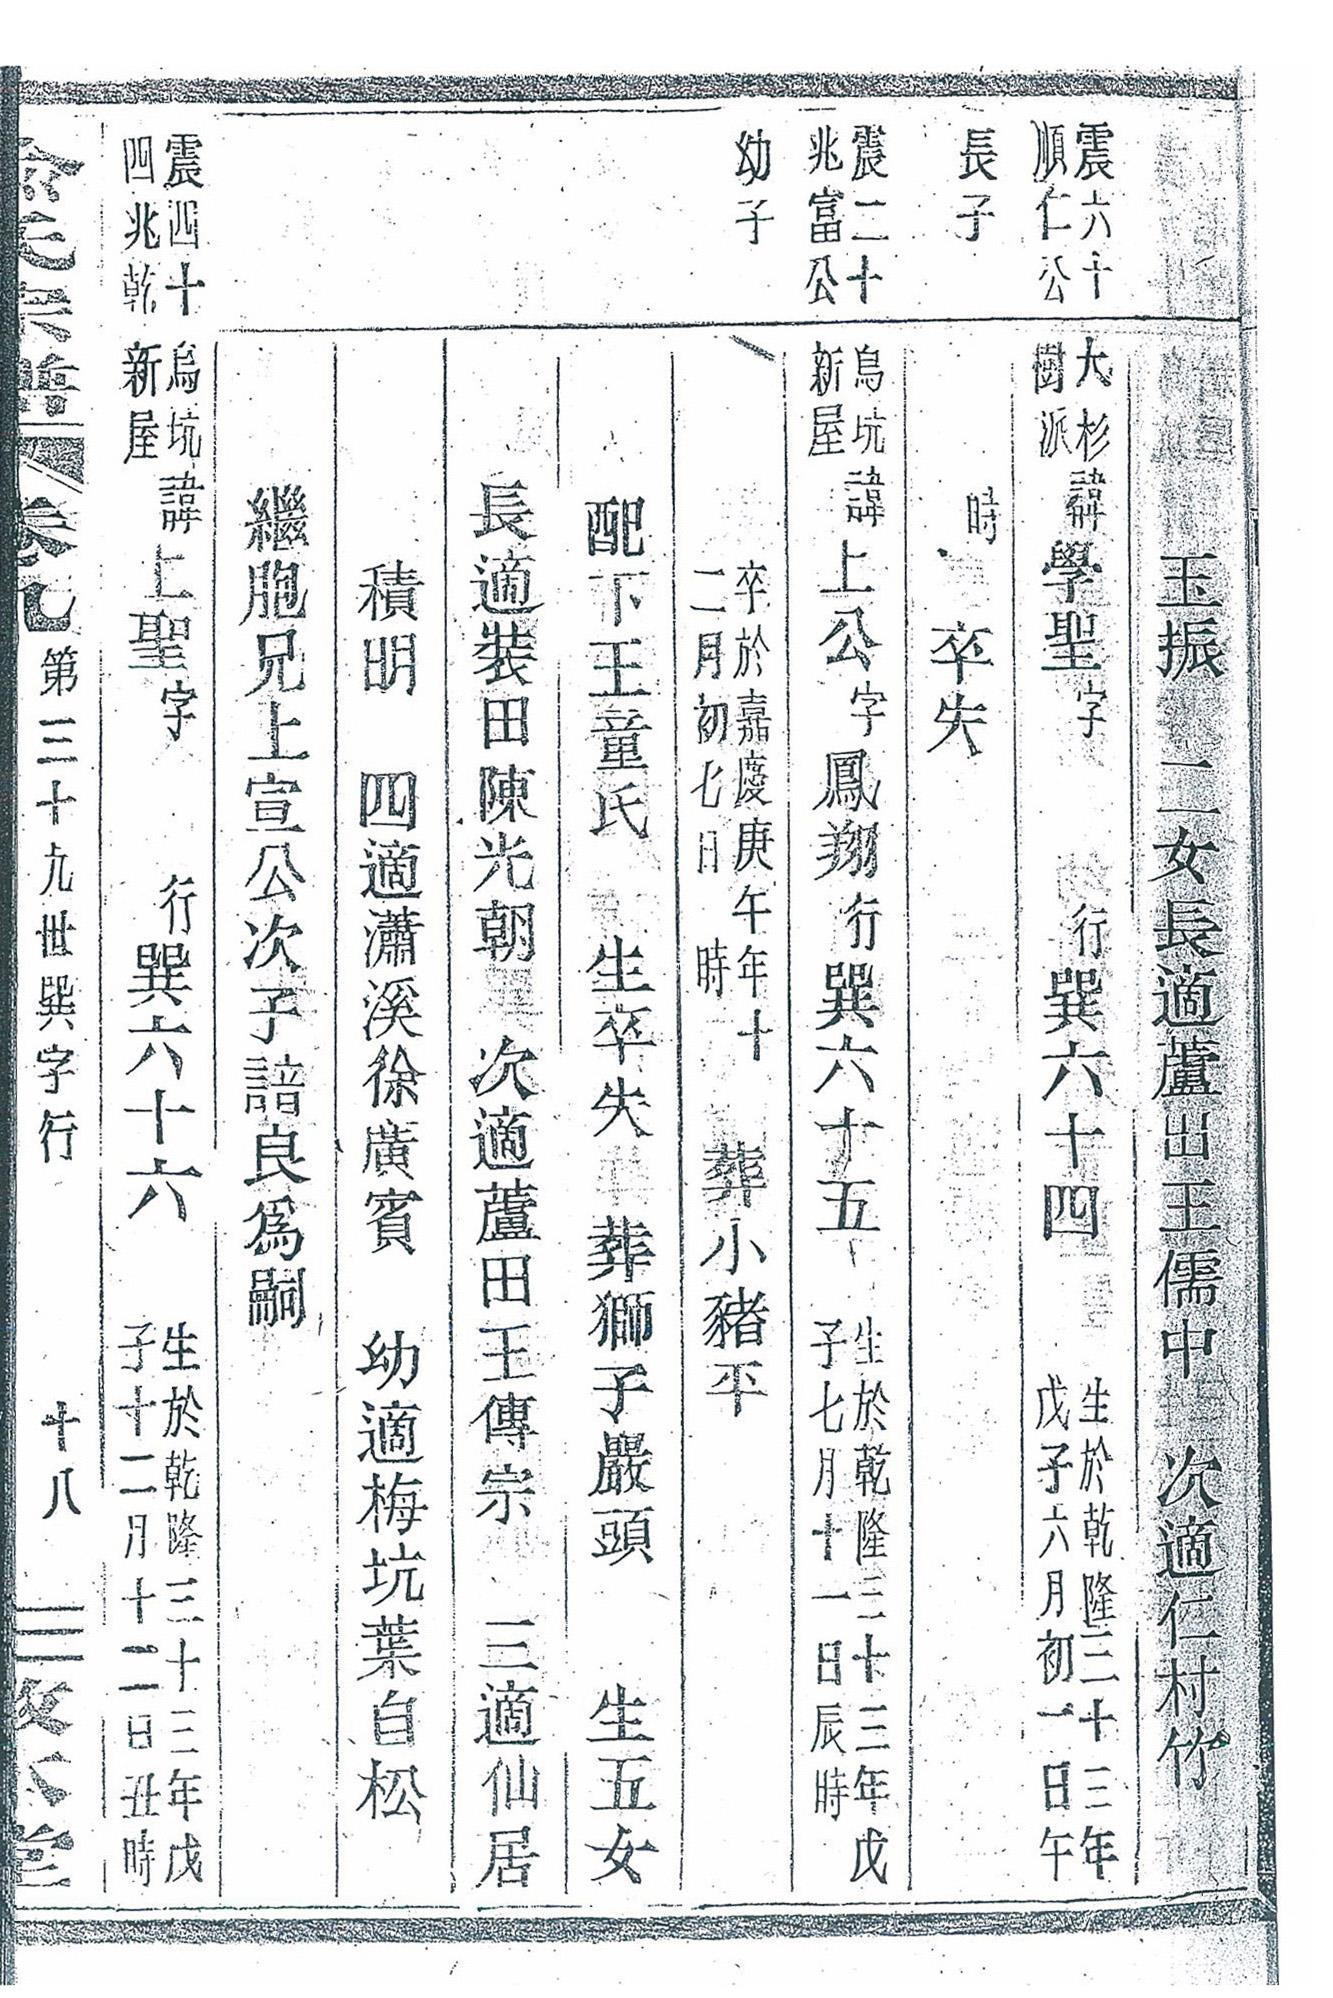 玉振 二女長適蘆出王儒中 次適仁村竹
震六十
順仁公
大杉
樹派
諱學聖字 行巽六十四
生於乾隆三十三年
戊子六月初一日午
長子
時
卒失
震二十
兆富公
烏坑
新屋
諱上公字鳳翔行巽六十五
生於乾隆三十三年戊
子七月十一日辰時
幼子
卒於嘉慶庚午年十
二月初七日 時
葬小豬平
配下王童氏 生卒失 葬獅子嚴頭 生五女
長適裝田陳光朝 次適蘆田王傳宗 三適仙居
積明 四適瀟溪徐廣賓 幼適梅坑葉自松
繼胞兄上宣公次子諳良為嗣
震四十
四兆乾
烏坑
新屋
諱上聖字 行巽六十六
生於乾隆三十三年戊
子十二月十二日丑時
氏宗譜 卷九 第三十九世巽字行 十八 敦本堂